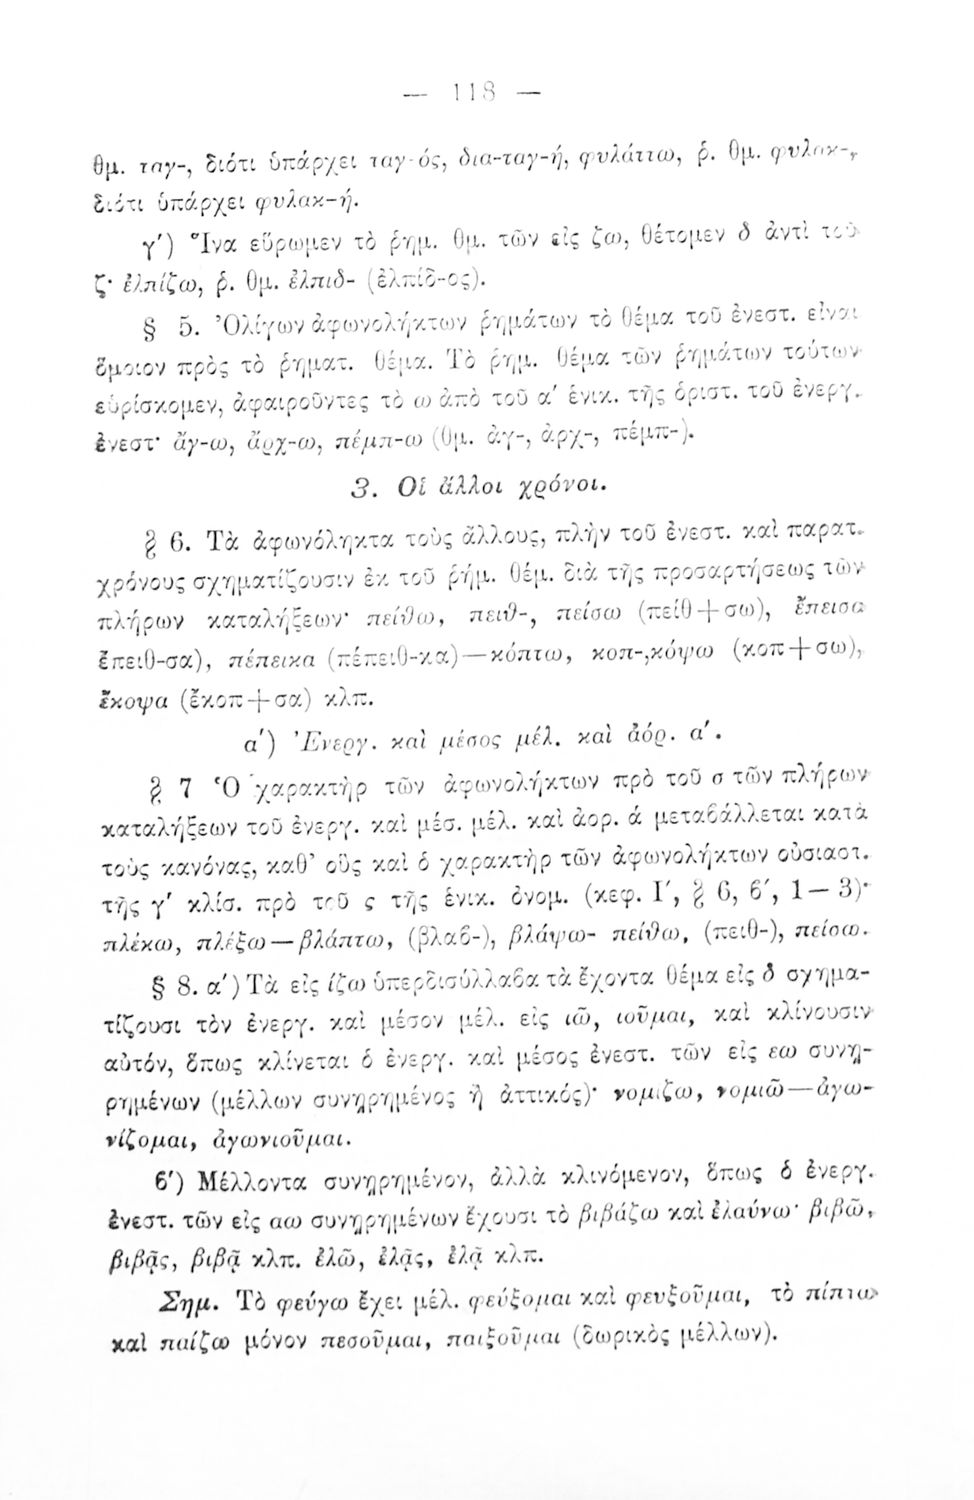 — 118 —
θμ. ταγ-, διότι ὑπάρχει ταγ-ός, δια-ταγ-ή, φυλάττω, ῥ. θμ. φυλακ-,
διότι ὑπάρχει φυλακ-ή.
γ') Ἵνα εὕρωμεν τὸ ῥημ. θμ. τῶν εἰς ζω, θέτομεν δ ἀντὶ τοῦ
ζ· ἐλπίζω, ῥ. θμ. ἐλπιδ- (ἐλπίδ-ος).
§ 5. Ὀλίγων ἀφωνολήκτων ῥημάτων τὸ θέμα τοῦ ἐνεστ. εἶναι
ὅμοιον πρὸς τὸ ῥηματ. θέμα. Τὸ ῥημ. θέμα τῶν ῥημάτων τούτων
εὑρίσκομεν, ἀφαιροῦντες τὸ ω ἀπὸ τοῦ α' ἑνικ. τῆς ὁριστ. τοῦ ἐνεργ.
ἐνεστ· ἄγ-ω, ἄρχ-ω, πέμπ-ω (θμ. ἀγ-, ἀρχ-, πέμπ-).
3. Οἱ ἄλλοι χρόνοι.
§ 6. Τὰ ἀφωνόληκτα τοὺς ἄλλους, πλὴν τοῦ ἐνεστ. καὶ παρατ.
χρόνους σχηματίζουσιν ἐκ τοῦ ῥήμ. θέμ. διὰ τῆς προσαρτήσεως τῶν
πλήρων καταλήξεων· πείθω, πειθ-, πείσω (πείθ+σω), ἔπεισα
ἔπειθ-σα), πέπεικα (πέπειθ-κα)—κόπτω, κοπ-,κόψω (κοπ+σω),
ἔκοψα (ἔκοπ+σα) κλπ.
α') Ἐνεργ. καὶ μέσος μέλ. καὶ ἀόρ. α'.
§ 7 Ὁ χαρακτὴρ τῶν ἀφωνολήκτων πρὸ τοῦ σ τῶν πλήρων
καταλήξεων τοῦ ἐνεργ. καὶ μέσ. μέλ. καὶ ἀορ. ά μεταβάλλεται κατὰ
τοὺς κανόνας, καθ' οὓς καὶ ὁ χαρακτὴρ τῶν ἀφωνολήκτων οὐσιαστ.
τῆς γ' κλίσ. πρὸ τοῦ ς τῆς ἑνικ. ὀνομ. (κεφ. Ι', § 6, β', 1 — 3)·
πλέκω, πλέξω — βλάπτω, (βλαβ-), βλάψω- πείθω, (πειθ-), πείσω.
§ 8. α') Τὰ εἰς ίζω ὑπερδισύλλαβα τὰ ἔχοντα θέμα εἰς δ σχημα-
τίζουσι τὸν ἐνεργ. καὶ μέσον μέλ. εἰς ιῶ, ιοῦμαι, καὶ κλίνουσιν
αὐτόν, ὅπως κλίνεται ὁ ἐνεργ. καὶ μέσος ἐνεστ. τῶν εἰς εω συνῃ-
ρημένων (μέλλων συνῃρημένος ἢ ἀττικός)· νομιζω, νομιῶ — ἀγω-
νίζομαι, ἀγωνιοῦμαι.
β') Μέλλοντα συνῃρημένον, ἀλλὰ κλινόμενον, ὅπως ὁ ἐνεργ.
ἐνεστ. τῶν εἰς αω συνῃρημένων ἔχουσι τὸ βιβάζω καὶ ἐλαύνω· βιβῶ,
βιβᾷς, βιβᾷ κλπ. ἐλῶ, ἐλᾷς, ἐλᾷ κλπ.
Σημ. Τὸ φεύγω ἔχει μέλ. φεύξομαι καὶ φευξοῦμαι, τὸ πίπτω
καὶ παίζω μόνον πεσοῦμαι, παιξοῦμαι (δωρικὸς μέλλων).